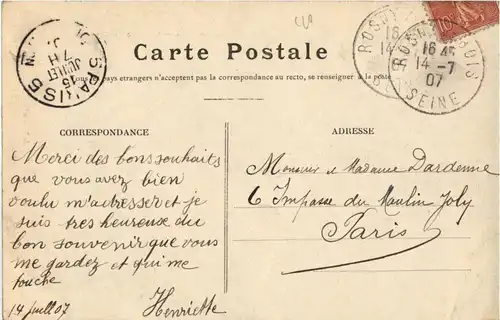 Carte Postale
Tous les pays etrangers n'acceptent pas la correspondance au recto, se renseigner à la poste
5 PARIS 5
7 H
15
JUILLET
ROSNY
16
14
ROSNY BOIS
16 45
14 -7
07
SEINE
10
CORRESPONDANCE
Merci des bons souhaits
que vous avez bien
voulu m'adresser et je
suis tres heureuse du
bon souvenir que vous
me gardez et qui me
touche
14 juill 07 Henriette
ADRESSE
Monsieur et Madame Dardenne
6 Impasse du Moulin Joly
Paris